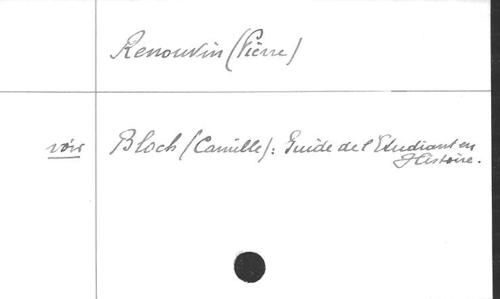 Renouvin (Pierre)
voir Bloch (Camille): Guide de l'Etudiant en
Histoire.